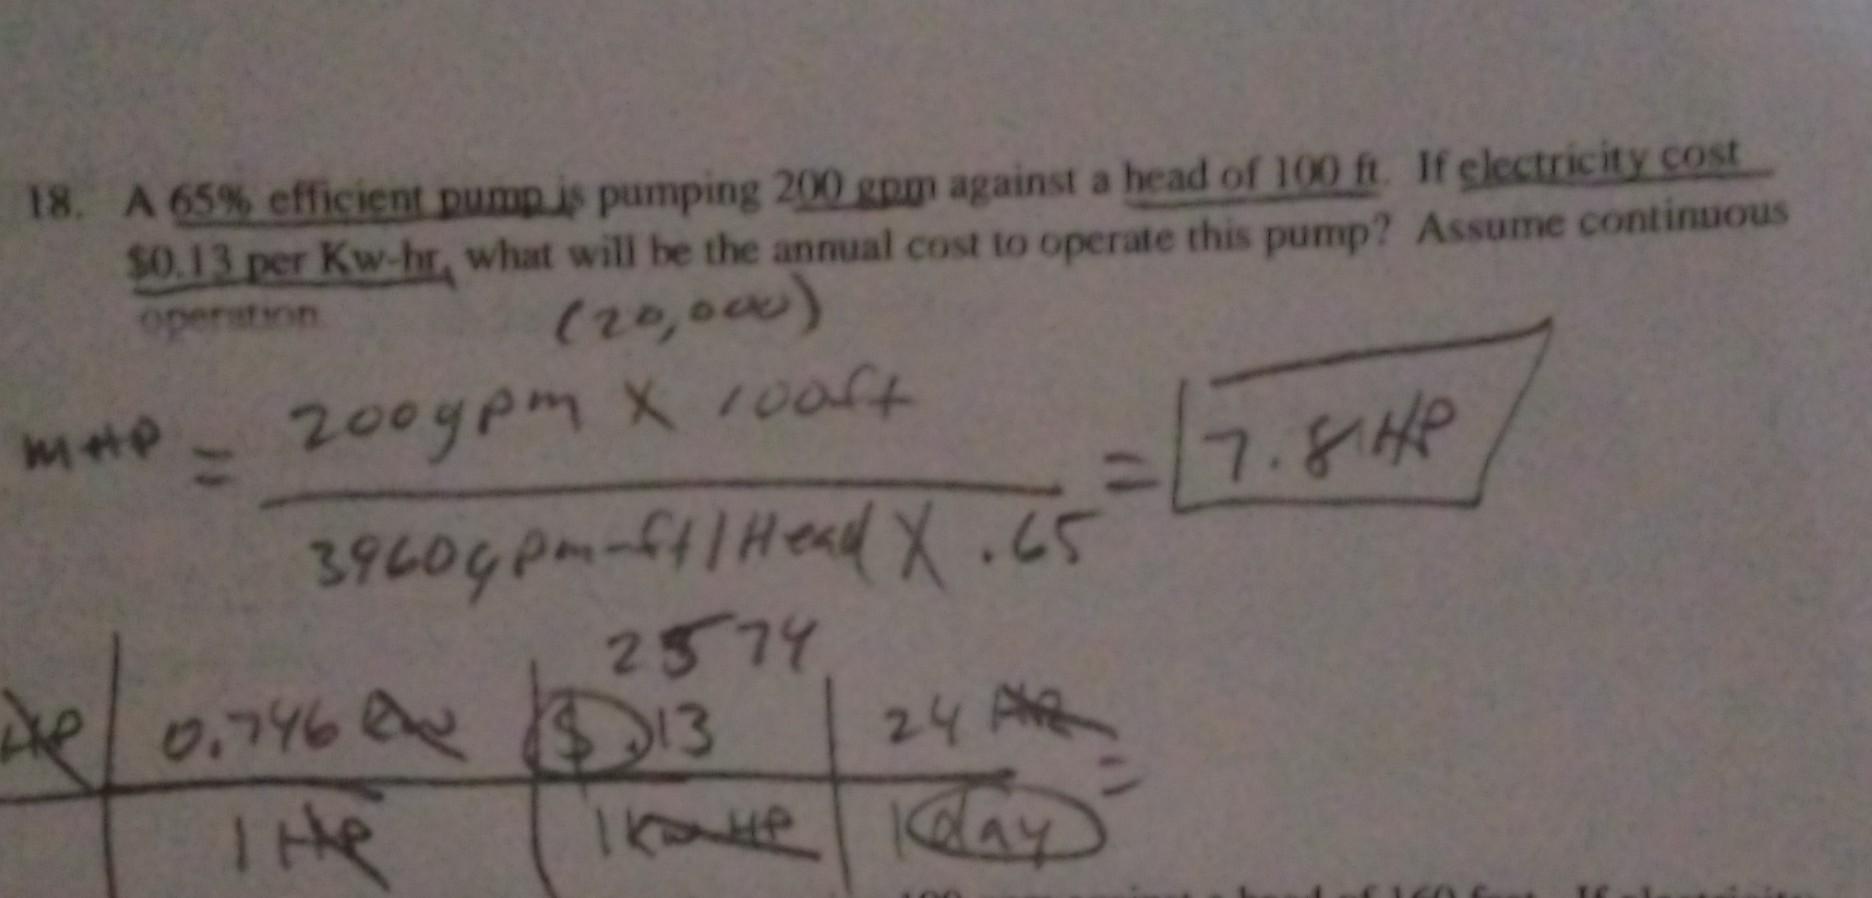 18. A 65% efficient pump is pumping 200 gpm against a head of 100 ft. If electricity cost
$0.13 per Kw-hr, what will be the annual cost to operate this pump? Assume continuous
operation
(20,000)
MHP = 200gpm X 100ft = 7.8HP
3960gpm-ft/Head X .65
2574
HP 0.746 Kw $.13 24 HR =
1 HP 1Kw-HR 1day